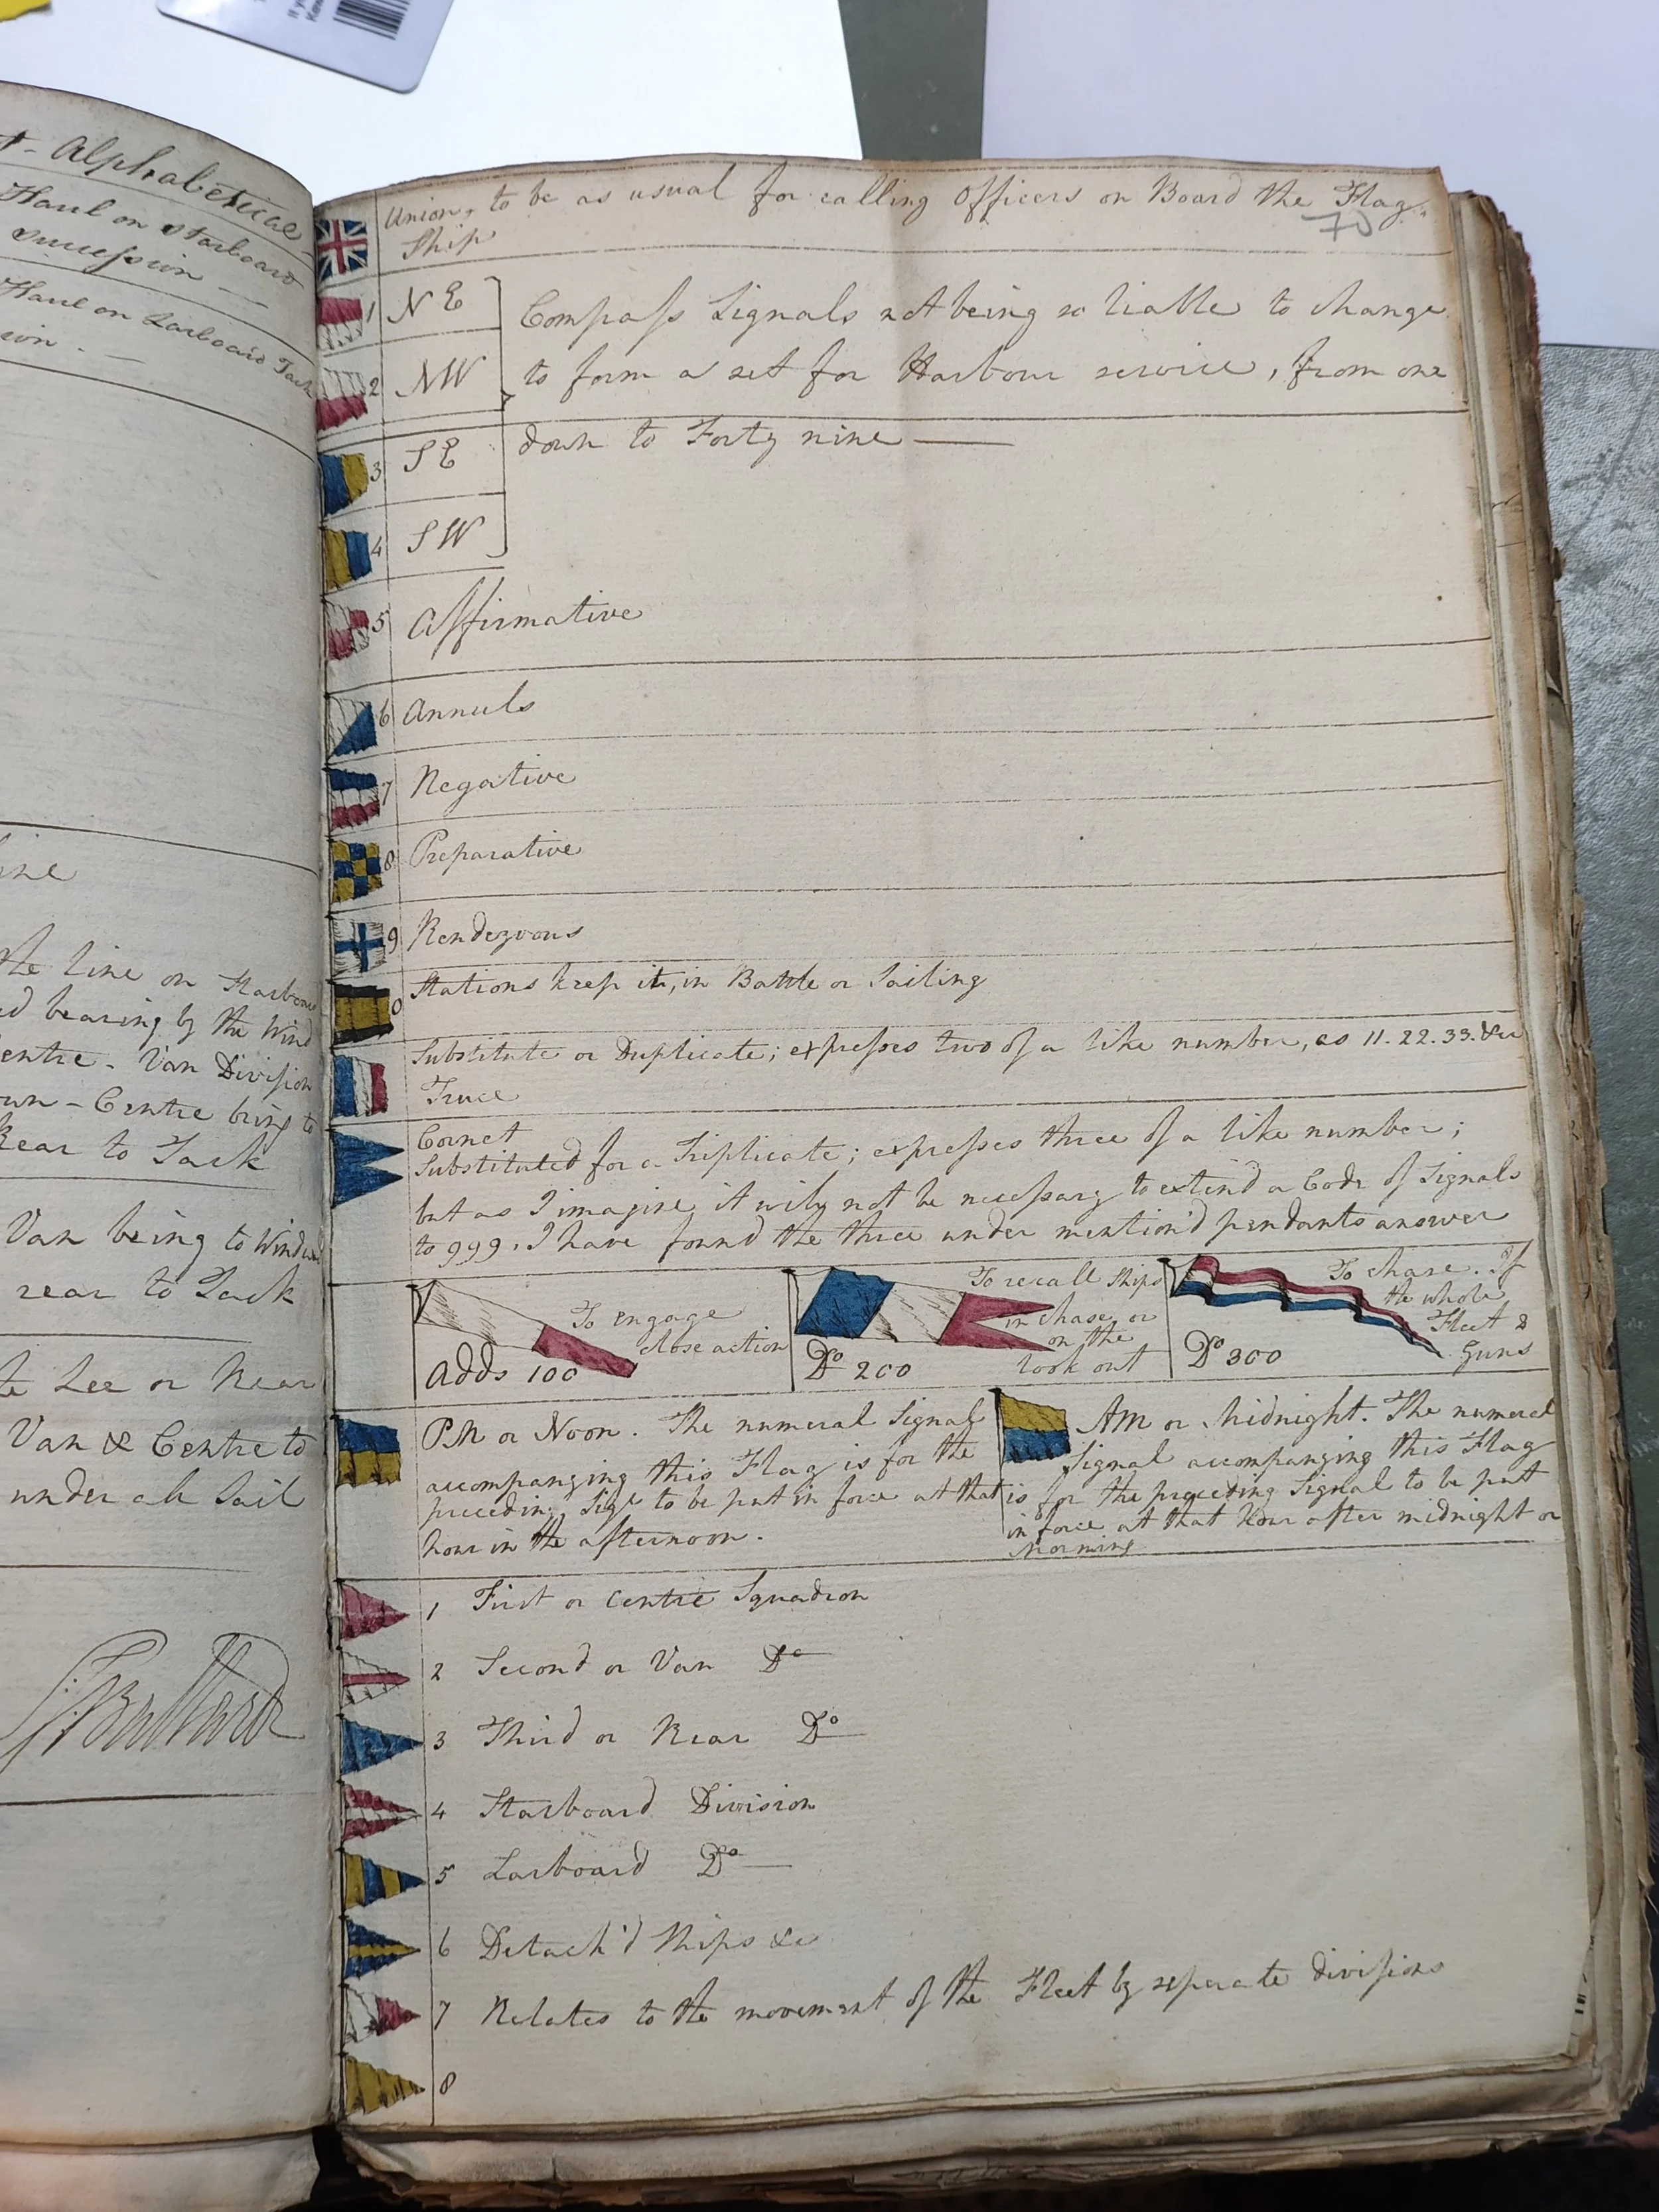 Alphabetical
Haul on Starboard
succession
Haul on Larboard Tack
the line on Starboard
bearing by the Wind
Centre - Van Division
Centre bring to
Rear to Tack
Van being to Windward
rear to Tack
Lee or Rear
Van & Centre to
under all Sail
Union, to be as usual for calling Officers on Board the Flag
Ship
70
1 NE
2 NW
3 SE
4 SW
Compass Signals not being so liable to change
to form a set for Harbour service, from one
down to Forty nine
5 Affirmative
6 Annuls
7 Negative
8 Preparative
9 Rendezvous
0 Stations keep it, in Battle or Sailing
Substitute or Duplicate; expresses two of a like number, as 11. 22. 33. &c
Truce
Cornet
Substituted for a Triplicate; expresses three of a like number;
but as I imagine it will not be necessary to extend a Code of Signals
to 999. I have found the three under mention'd pendants answer
To engage
close action
Adds 100
To recall Ships
in chase or
on the
look out
Do 200
To Chase. If
the whole
Fleet 2
Guns
Do 300
PM or Noon. The numeral Signal
accompanying this Flag is for the
preceding Sigl to be put in force at that
hour in the afternoon.
AM or Midnight. The numeral
Signal accompanying this Flag
is for the preceding Signal to be put
in force at that hour after midnight or
Morning
1 First or Centre Squadron
2 Second or Van Do
3 Third or Rear Do
4 Starboard Division
5 Larboard Do
6 Detach'd Ships &c
7 Relates to the movement of the Fleet by seperate divisions
8